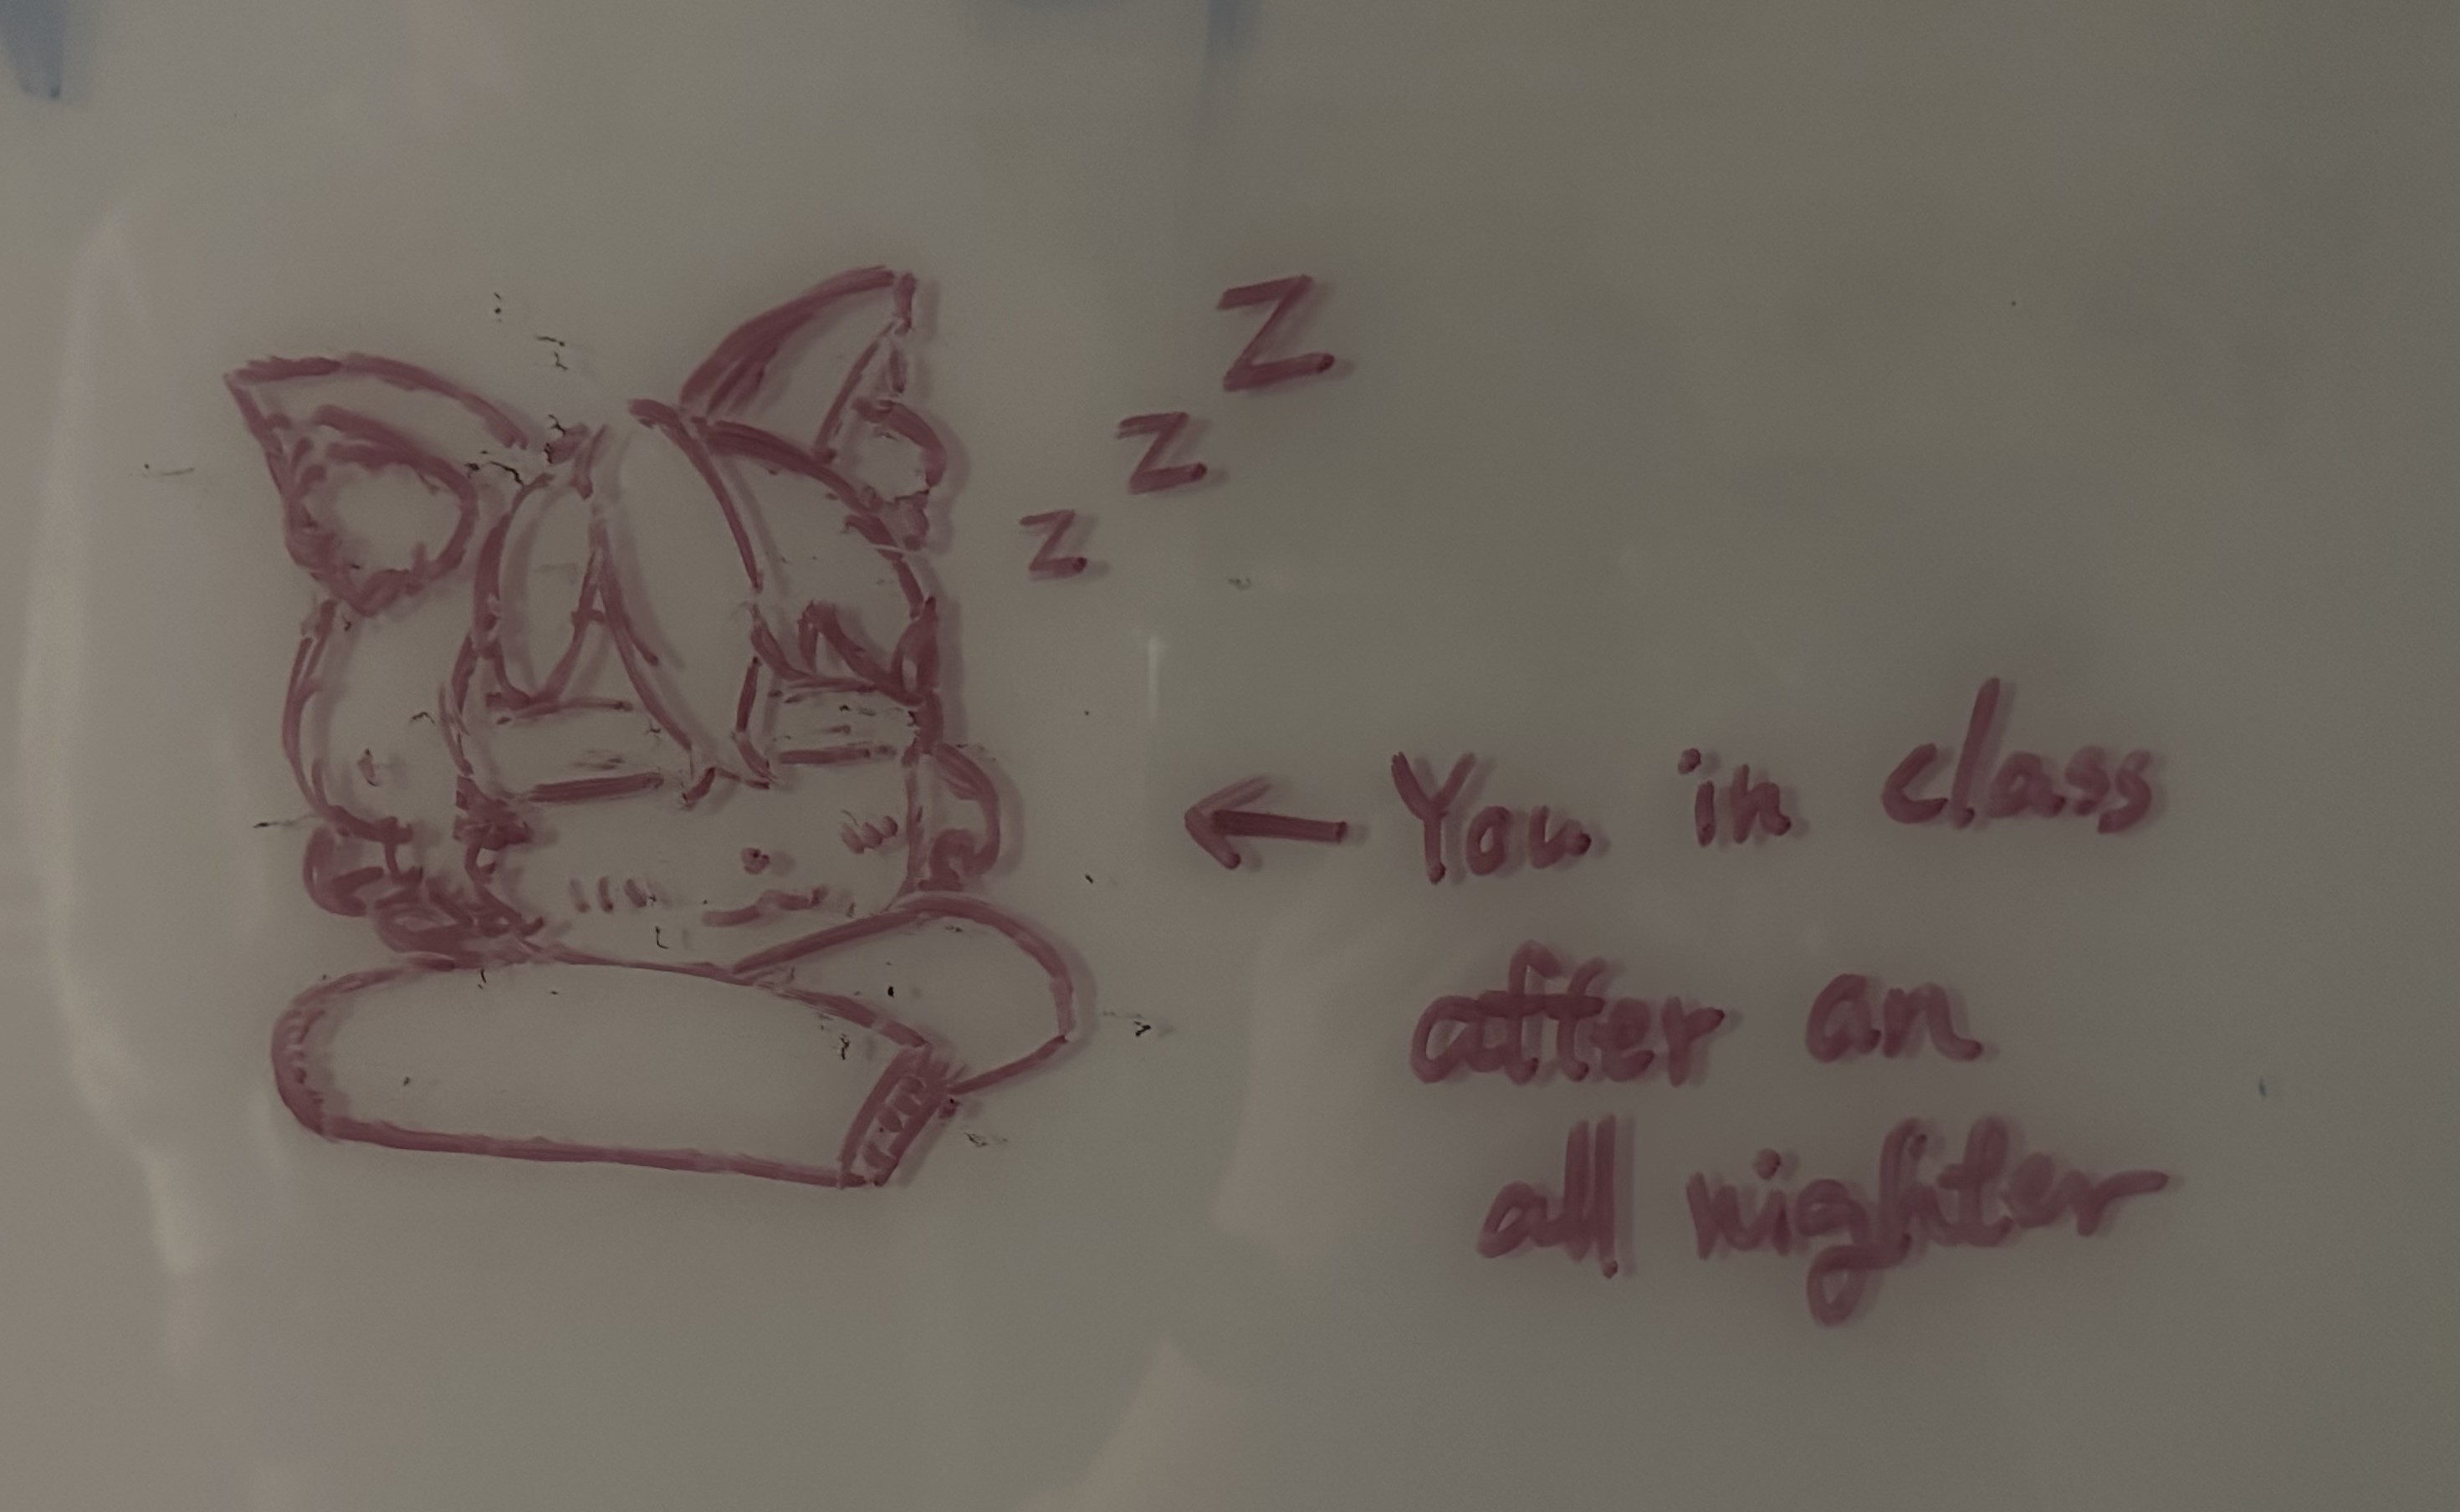 Z
z
z
← You in class
after an
all nighter